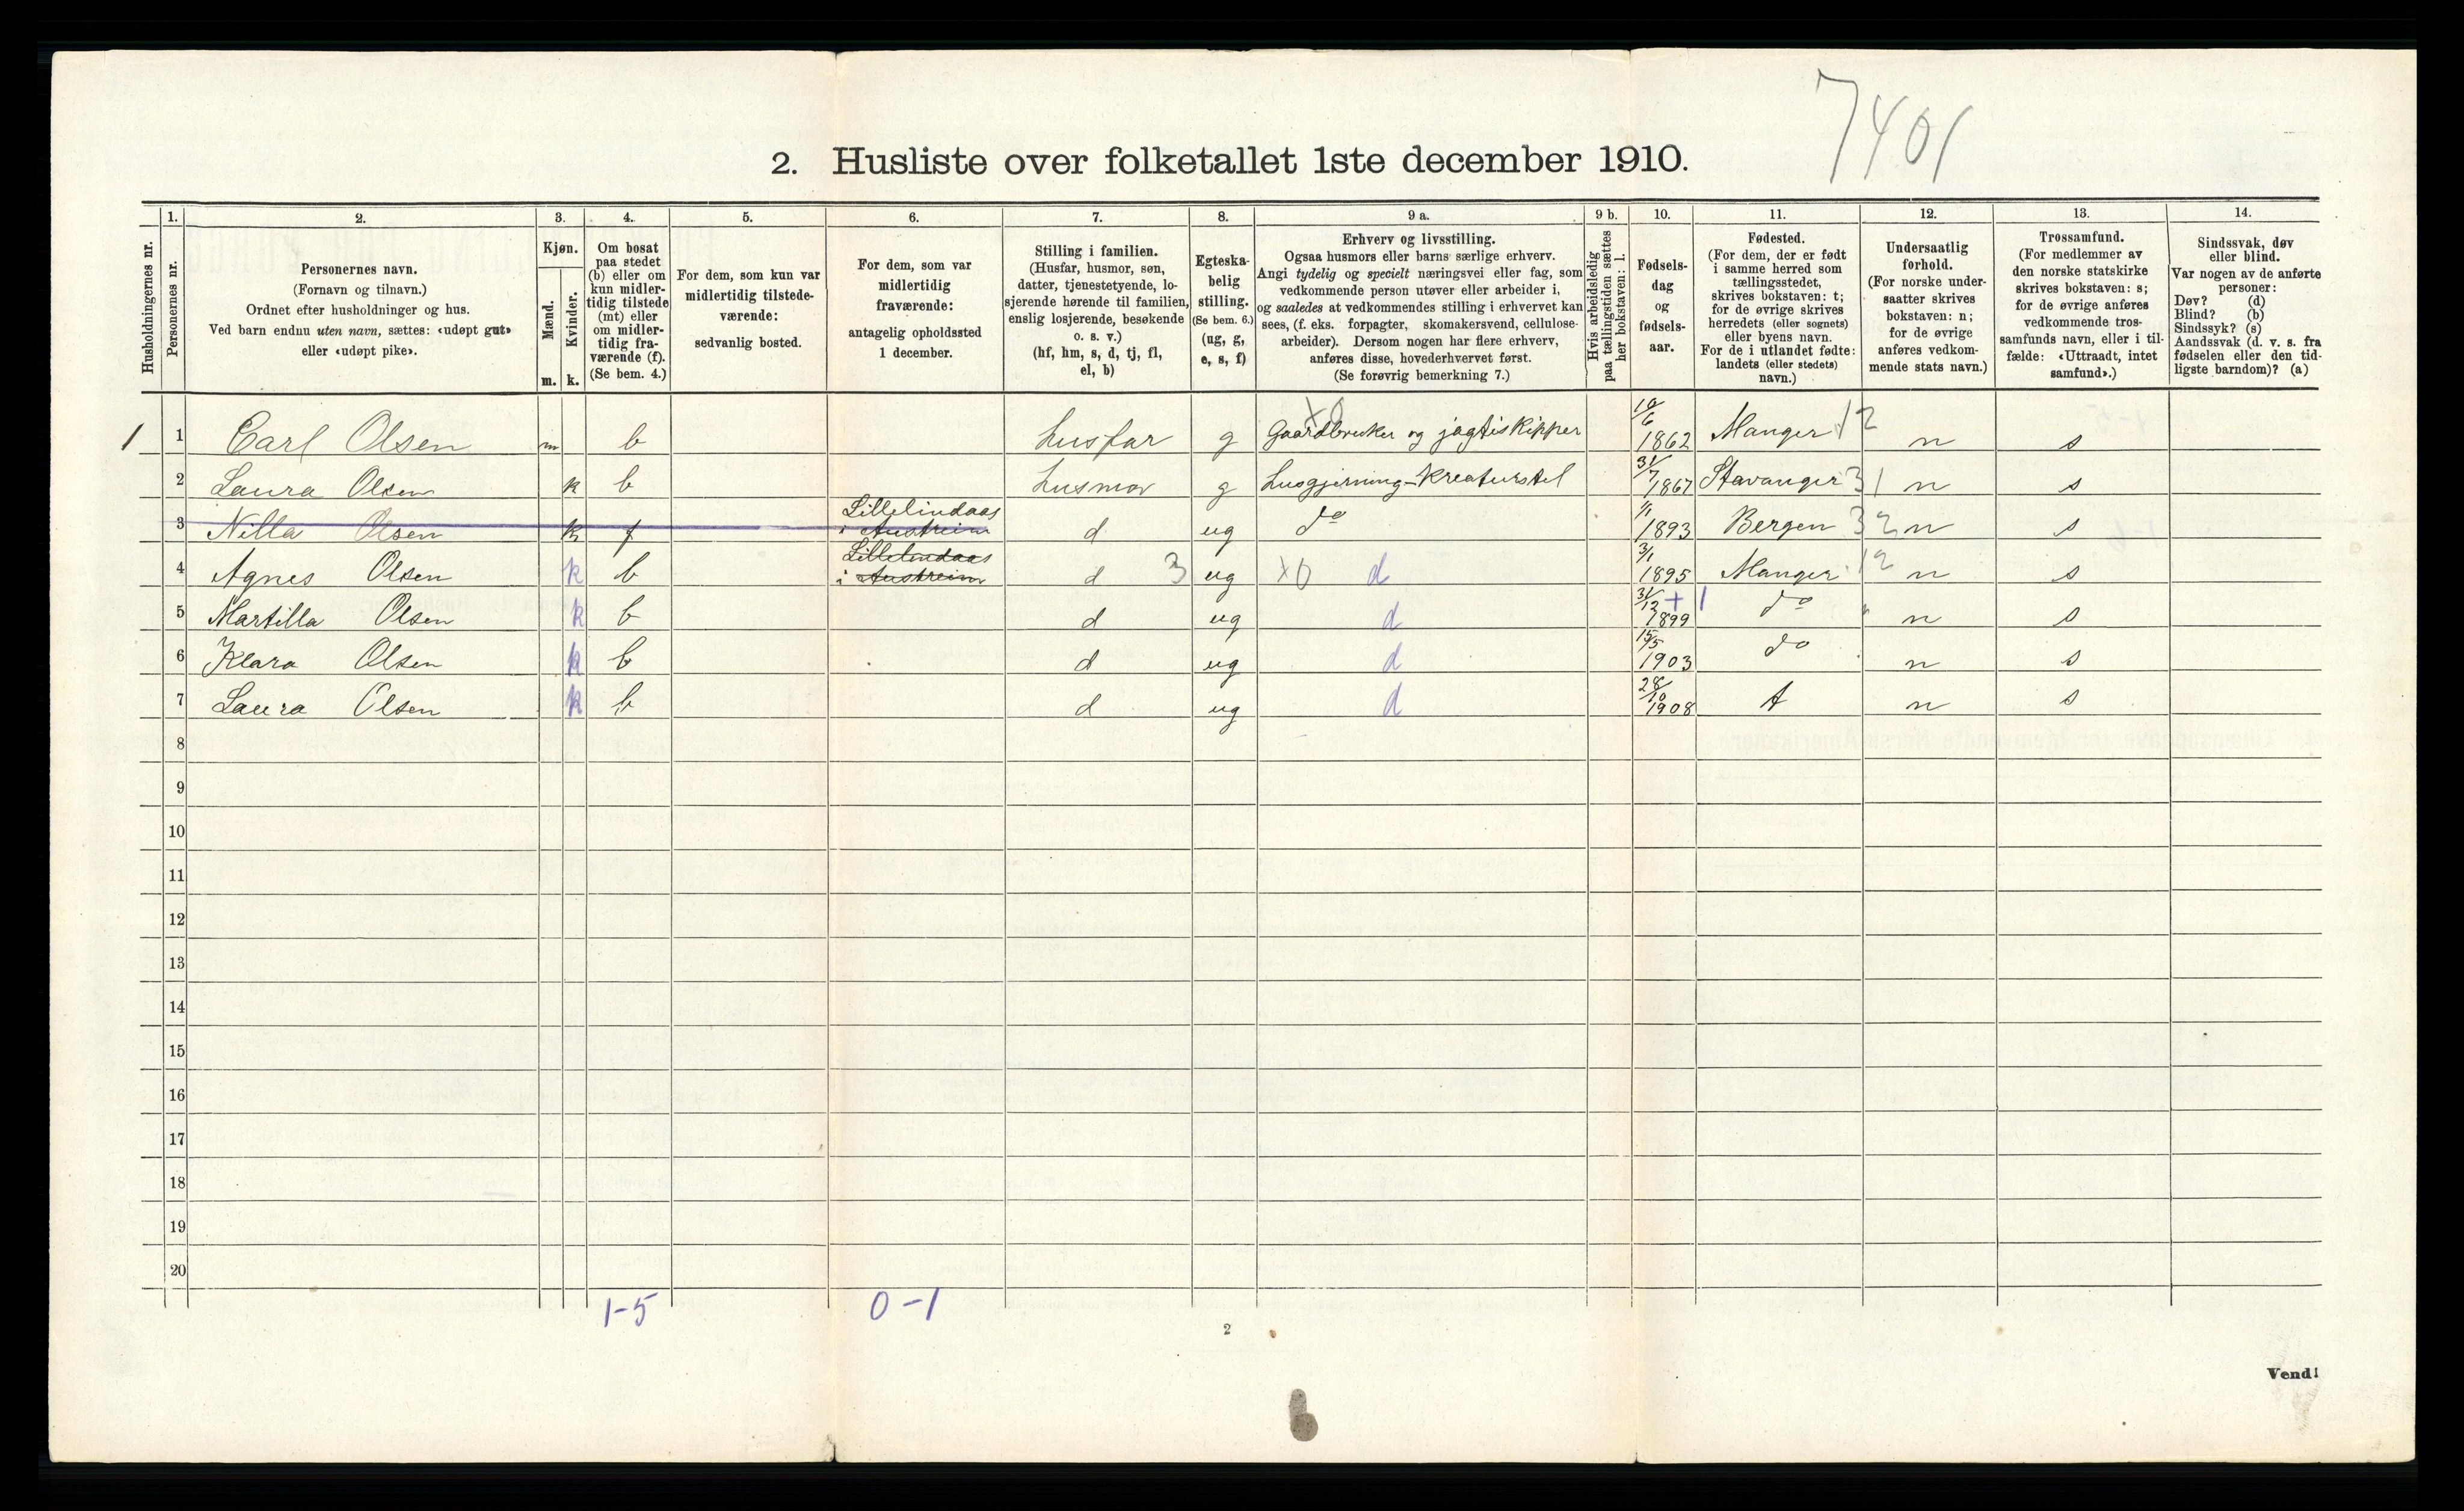 7401
2. Husliste over folketallet 1ste december 1910.
Husholdningernes nr.
1.
Personernes nr.
2.
Personernes navn.
(Fornavn og tilnavn.)
Ordnet efter husholdninger og hus.
Ved barn endnu uten navn, sættes: «udøpt gut»
eller «udøpt pike».
3.
Kjøn.
Mænd.
Kvinder.
m. k.
4.
Om bosat
paa stedet
(b) eller om
kun midler-
tidig tilstede
(mt) eller
om midler-
tidig fra-
værende (f).
(Se bem. 4.)
5.
For dem, som kun var
midlertidig tilstede-
værende:
sedvanlig bosted.
6.
For dem, som var
midlertidig
fraværende:
antagelig opholdssted
1 december.
7.
Stilling i familien.
(Husfar, husmor, søn,
datter, tjenestetyende, lo-
sjerende hørende til familien,
enslig losjerende, besøkende
o. s. v.)
(hf, hm, s, d, tj, fl,
el, b)
8.
Egteska-
belig
stilling.
(Se bem. 6.)
(ug, g,
e, s, f)
9 a.
Erhverv og livsstilling.
Ogsaa husmors eller barns særlige erhverv.
Angi tydelig og specielt næringsvei eller fag, som
vedkommende person utøver eller arbeider i,
og saaledes at vedkommendes stilling i erhvervet kan
sees, (f. eks. forpagter, skomakersvend, cellulose-
arbeider). Dersom nogen har flere erhverv,
anføres disse, hovederhvervet først.
(Se forøvrig bemerkning 7.)
9 b.
Hvis arbeidsledig
paa tællingstiden sættes
her bokstaven: l.
10.
Fødsels-
dag
og
fødsels-
aar.
11.
Fødested.
(For dem, der er født
i samme herred som
tællingsstedet,
skrives bokstaven: t;
for de øvrige skrives
herredets (eller sognets)
eller byens navn.
For de i utlandet fødte:
landets (eller stedets)
navn.)
12.
Undersaatlig
forhold.
(For norske under-
saatter skrives
bokstaven: n;
for de øvrige
anføres vedkom-
mende stats navn.)
13.
Trossamfund.
(For medlemmer av
den norske statskirke
skrives bokstaven: s;
for de øvrige anføres
vedkommende tros-
samfunds navn, eller i til-
fælde: «Uttraadt, intet
samfund».)
14.
Sindssvak, døv
eller blind.
Var nogen av de anførte
personer:
Døv? (d)
Blind? (b)
Sindssyk? (s)
Aandssvak (d. v. s. fra
fødselen eller den tid-
ligste barndom)? (a)
1 1 Carl Olsen m b husfar g Gaardbruker og jagtskipper X0 10/6 1862 Manger 12 n s
2 Laura Olsen k b husmor g husgjerning - kreaturstel 31/7 1867 Stavanger 31 n s
3 Nilla Olsen k f Lillelindaas i Austreim d ug do 1/1 1893 Bergen 32 n s
4 Agnes Olsen k b Lillelindaas i Austreim d 3 ug X0 d 3/1 1895 Manger 12 n s
5 Martilla Olsen k b d ug d 31/12 + 1 1899 do n s
6 Klara Olsen k b d ug d 15/5 1903 do n s
7 Laura Olsen k b d ug d 28/10 1908 t n s
8
9
10
11
12
13
14
15
16
17
18
19
20
1-5 0-1
2
Vend!